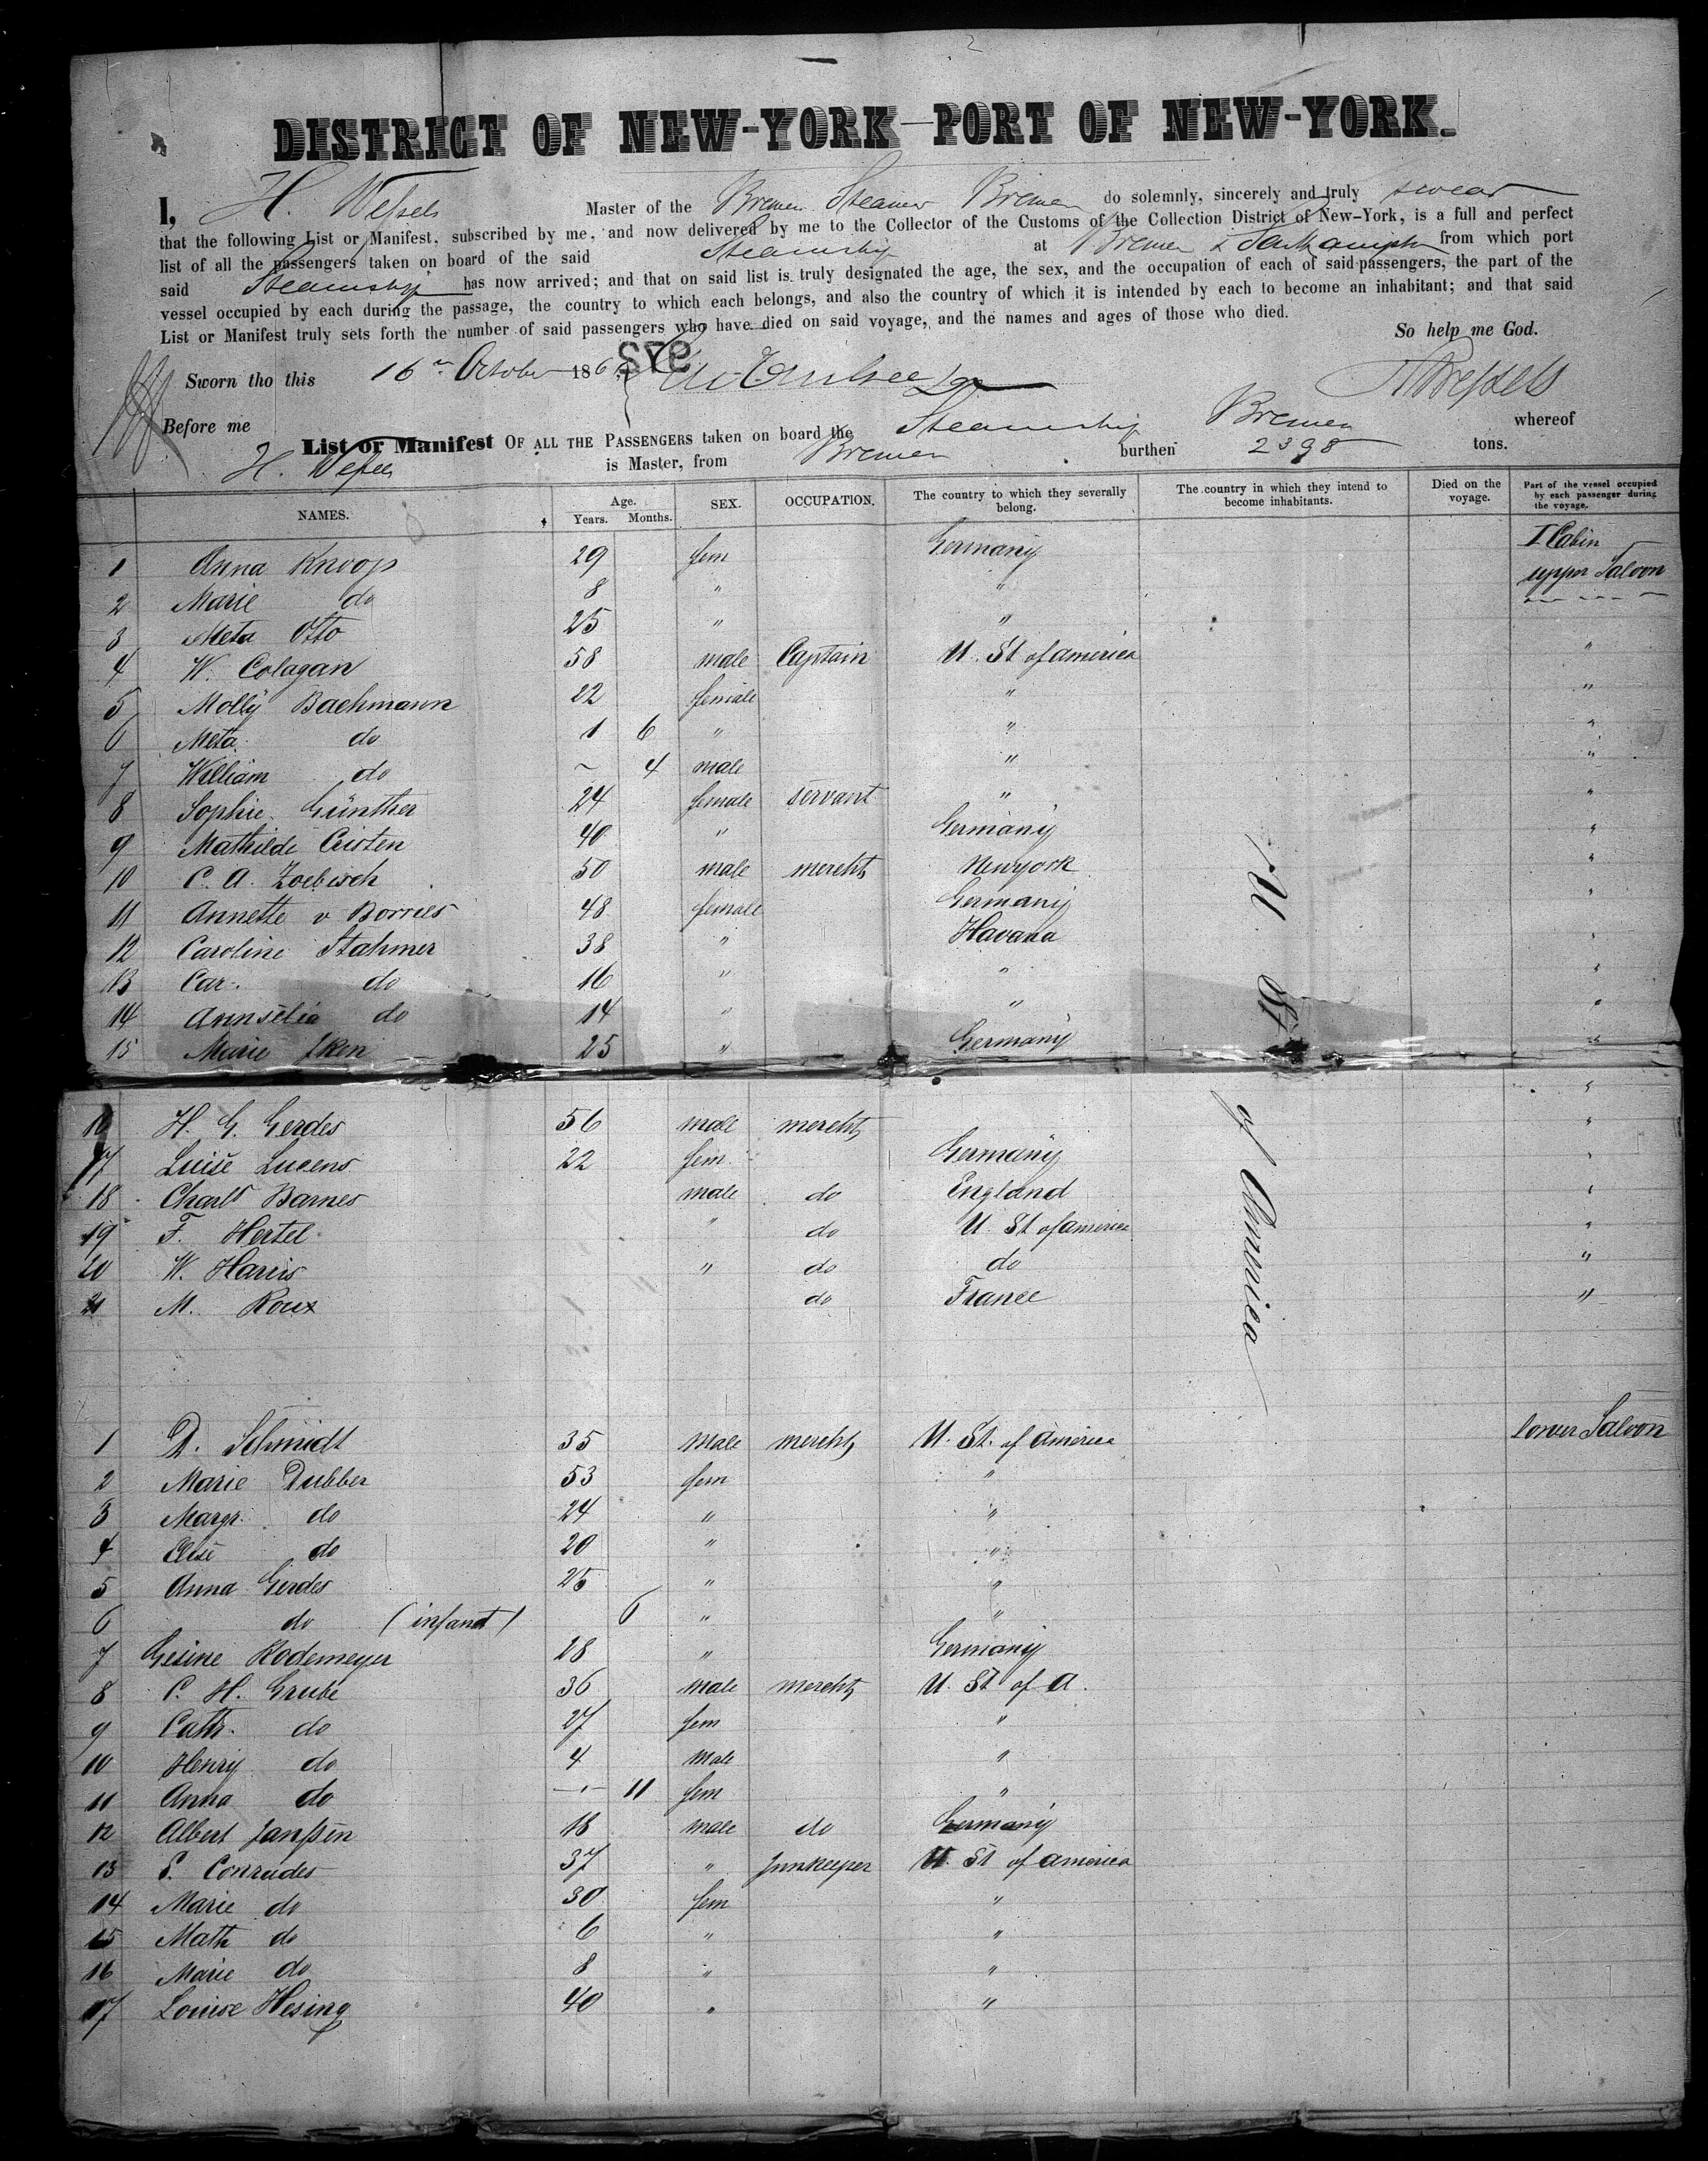 DISTRICT OF NEW-YORK—PORT OF NEW-YORK.
I, H. Weſsels Master of the Bremen Steamer Bremen do solemnly, sincerely and truly swear
that the following List or Manifest, subscribed by me, and now delivered by me to the Collector of the Customs of the Collection District of New-York, is a full and perfect
list of all the passengers taken on board of the said Steamship at Bremen & Southampton from which port
said Steamship has now arrived; and that on said list is truly designated the age, the sex, and the occupation of each of said passengers, the part of the
vessel occupied by each during the passage, the country to which each belongs, and also the country of which it is intended by each to become an inhabitant; and that said
List or Manifest truly sets forth the number of said passengers who have died on said voyage, and the names and ages of those who died. So help me God.
Sworn tho this 16th October 186 HWeſsels
972
Before me
List or Manifest OF ALL THE PASSENGERS taken on board the Steamship Bremen whereof
H. Weſsels is Master, from Bremen burthen 2398 tons.
NAMES. Age. Years. Months. SEX. OCCUPATION. The country to which they severally belong. The country in which they intend to become inhabitants. Died on the voyage. Part of the vessel occupied by each passenger during the voyage.
1 Anna Knoop 29 fem Germany I Cabin
upper Saloon
2 Marie do 8 " "
3 Meta Otto 25 " "
4 W. Colagan 58 male Captain U. St of America "
5 Molly Bachmann 22 female " "
6 Meta do 1 6 " " "
7 William do ~ 4 male " "
8 Sophie Günther 24 female servant " "
9 Mathilde 40 " Germany "
10 C. A. Zoebisch 50 male mercht Newyork "
11 Annette v Borries 48 female Germany "
12 Caroline Stahmer 38 " Havana "
13 Car. do 16 " " "
14 do 14 " " "
15 Marie Iken 25 " Germany "
16 H. G. Gerdes 56 male mercht "
17 Luise Lueens 22 fem Germany "
18 Charls Barnes male do England "
19 F. Hertel " do U St of America "
20 W. Harris " do do "
21 M. Roux do France "
U. St of America
1 D. Schmidt 35 Male mercht U. St. of America lower Saloon
2 Marie Dubber 53 fem "
3 Margr. do 24 " "
4 Elise do 20 " "
5 Anna Gerdes 25 " "
6 do (infant) 6 " "
7 Gesine Rodemeyer 28 " Germany
8 C. H. Grube 36 male mercht U. St of A.
9 Cath. do 27 fem "
10 Henry do 4 Male "
11 Anna do — 11 fem "
12 Albert Janſsen 18 male do Germany
13 Conrades 37 " Innkeeper U. St of America
14 Marie do 30 fem "
15 Math do 6 " "
16 Marie do 8 " "
17 Louise Hesing 40 " "